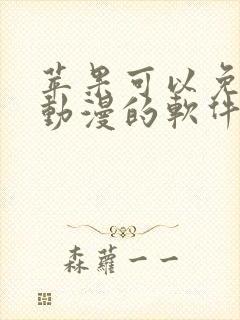 苹果可以免
動漫的軟件
森蘿一一